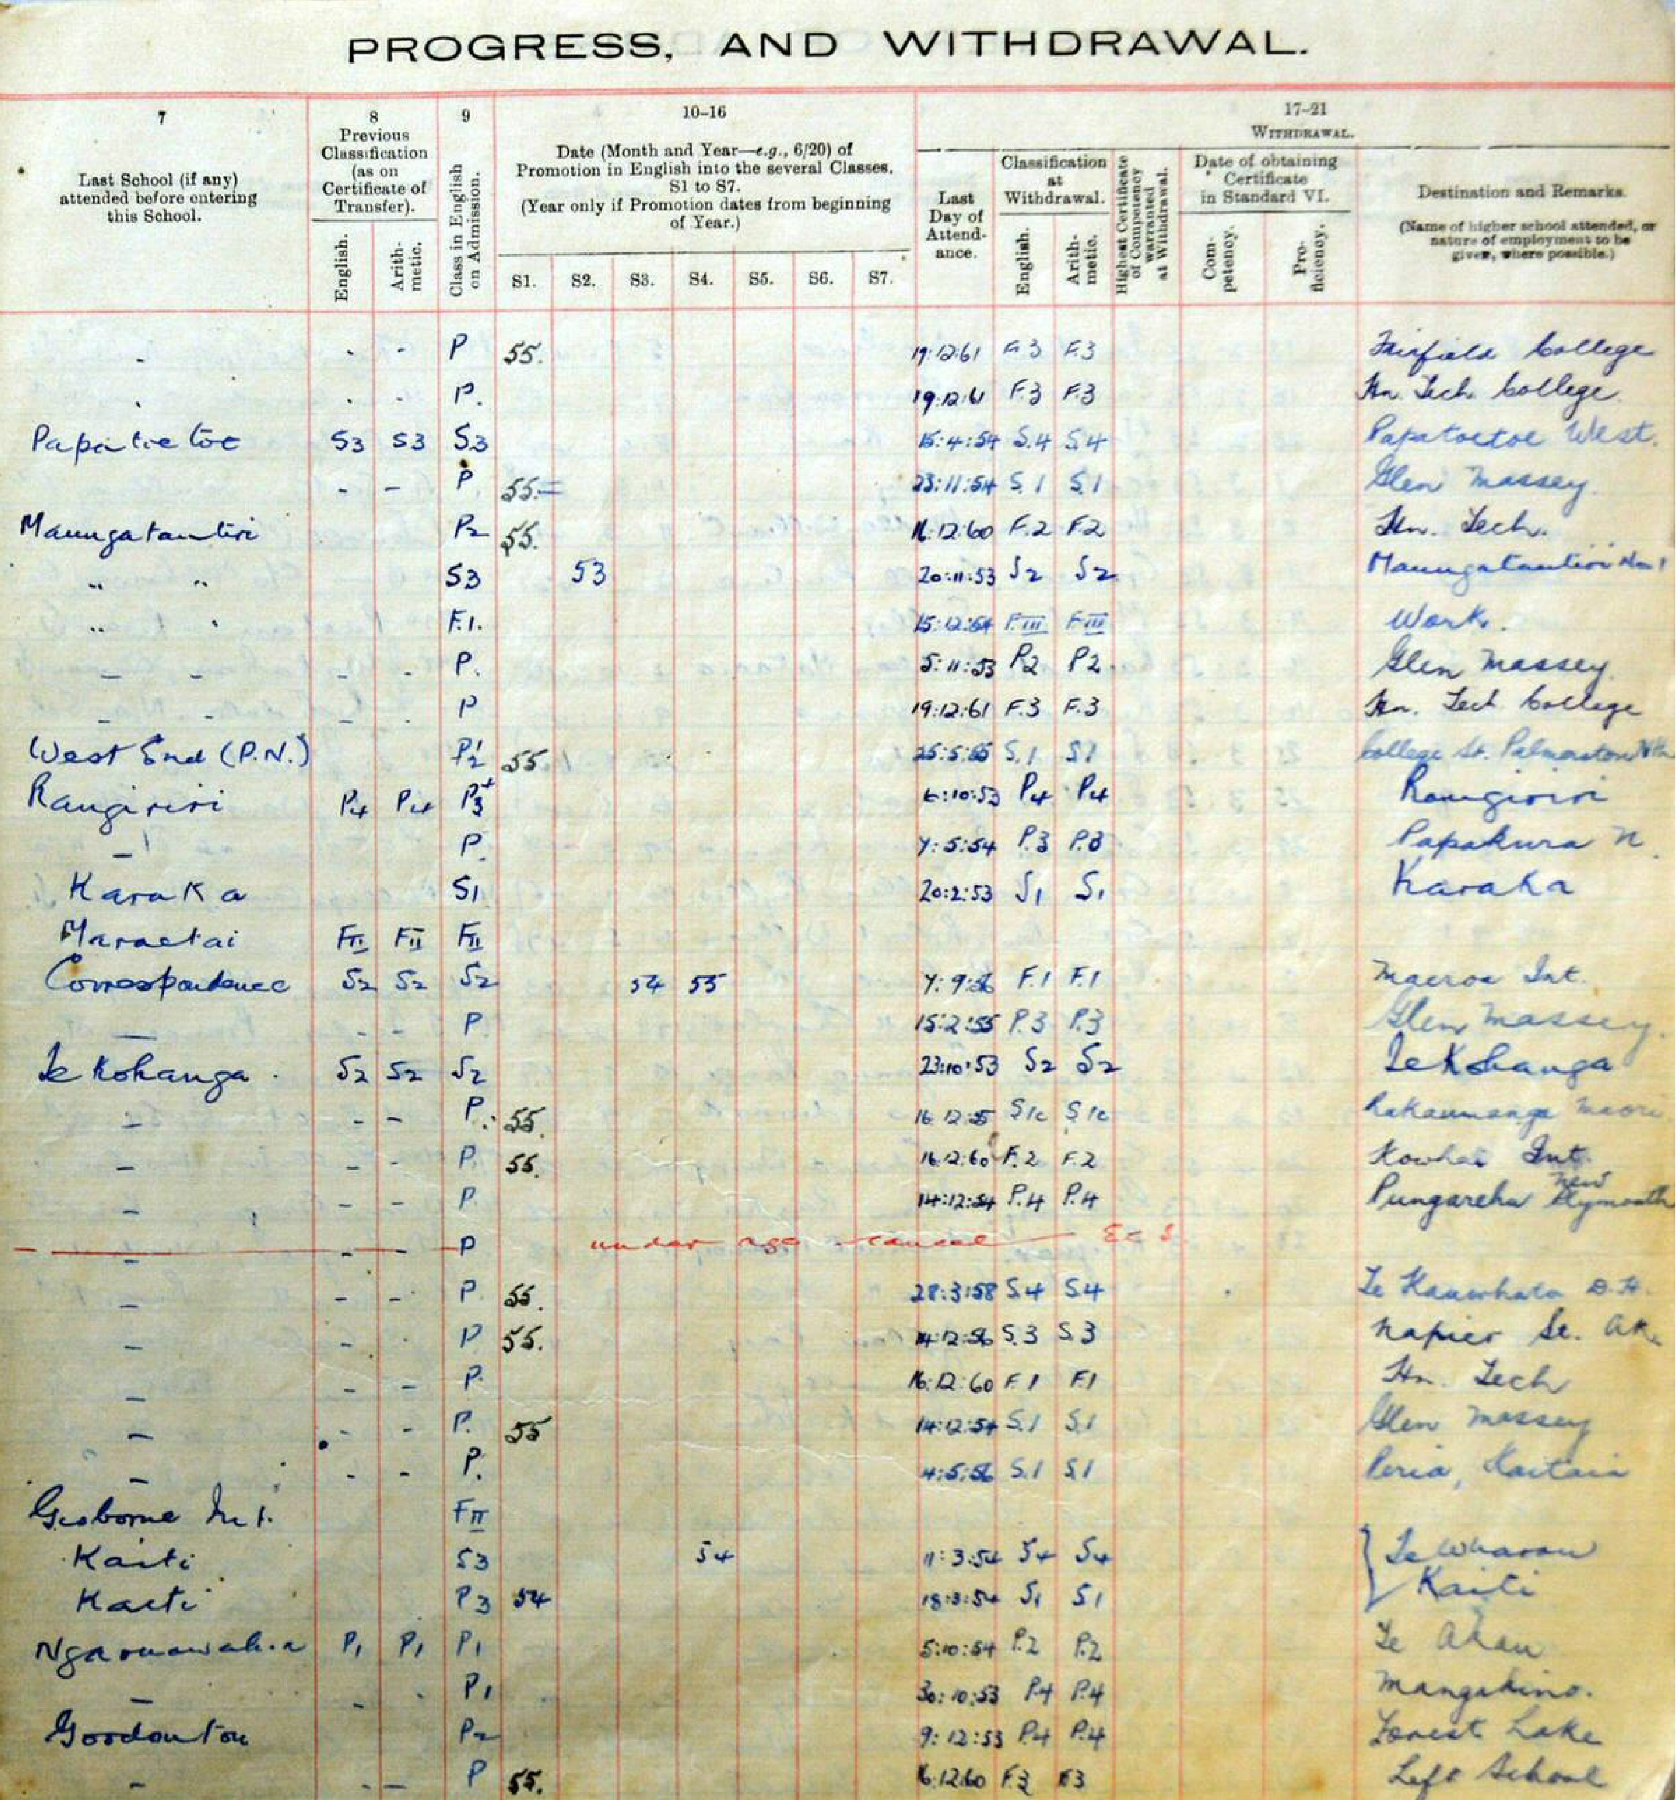 PROGRESS, AND WITHDRAWAL.
7 8 9 10-16 17-21
Last School (if any) attended before entering this School.
Previous Classification (as on Certificate of Transfer).
English. Arithmetic.
Class in English on Admission.
Date (Month and Year—e.g., 6/20) of Promotion in English into the several Classes, S1 to S7.
(Year only if Promotion dates from beginning of Year.)
S1. S2. S3. S4. S5. S6. S7.
WITHDRAWAL.
Last Day of Attendance.
Classification at Withdrawal.
English. Arithmetic.
Highest Certificate of Competency warranted at Withdrawal.
Date of obtaining Certificate in Standard VI.
Competency. Proficiency.
Destination and Remarks.
(Name of higher school attended, or nature of employment to be given, where possible.)
- - - P 55. 19:12:61 F.3 F.3 Fairfield College
. . - P. 19:12:61 F.3 F.3 Hn. Tech. College
Papatoetoe S3 S3 S3 15:4:54 S.4 S4 Papatoetoe West.
- - P. 55. 23:11:54 S.1 S.1 Glen Massey.
Maungatautiri P2 55. 16:12:60 F.2 F.2 Hn. Tech.
" " S3 53 20:11:53 S2 S2 Maungatautiri No 1
" " F.1. 15:12:54 F.III F III Work.
- - - - P. 5:11:53 P2 P2. Glen Massey.
- - - - P 19:12:61 F.3 F.3 Hn. Tech College
West End (P.N.) P2 55 25:5:55 S.1 S1 College St. Palmerston Nth
Rangiriri P4 P4 P3 6:10:53 P4 P4 Rangiriri
- P. 7:5:54 P.3 P.3 Papakura N.
Karaka S1 20:2:53 S1 S1 Karaka
Maraetai FII FII FII
Correspondence S2 S2 S2 54 55 7:9:56 F.1 F.1 Maeroa Int.
- - - P. 15:2:55 P.3 P.3 Glen Massey.
Te Kohanga. S2 S2 S2 23:10:53 S2 S2 Te Kohanga
- - - P. 55. 16 12 55 S1c S1c Rakaumanga Maori
- - - P. 55. 16:12:60 F.2 F.2 Kowhai Int.
- - - P. 14:12:54 P.4 P.4 Pungarehu New Plymouth
- - - P under age cancel
- - - P. 55. 28:3:58 S.4 S.4 Te Kauwhata D.H.
- - P 55. 14:12:56 S.3 S.3 Napier St. AK.
- - - P. 16:12:60 F.1 F.1 Hn. Tech
- - - P. 55 14:12:54 S.1 S.1 Glen Massey
- - - P. 4:5:56 S.1 S.1 Peria, Kaitaia
Gisborne Int. FII
Kaiti S3 54 11:3:54 S4 S4 Te Wharau
Kaiti P3 54 18:3:54 S1 S1 Kaiti
Ngaruawahia P1 P1 P1 5:10:54 P.2 P.2 Te Akau
- - P1 30:10:53 P4 P.4 Mangakino.
Gordonton P2 9:12:53 P.4 P.4 Forest Lake
- - - P 55. 16:12:60 F.3 F3 Left School